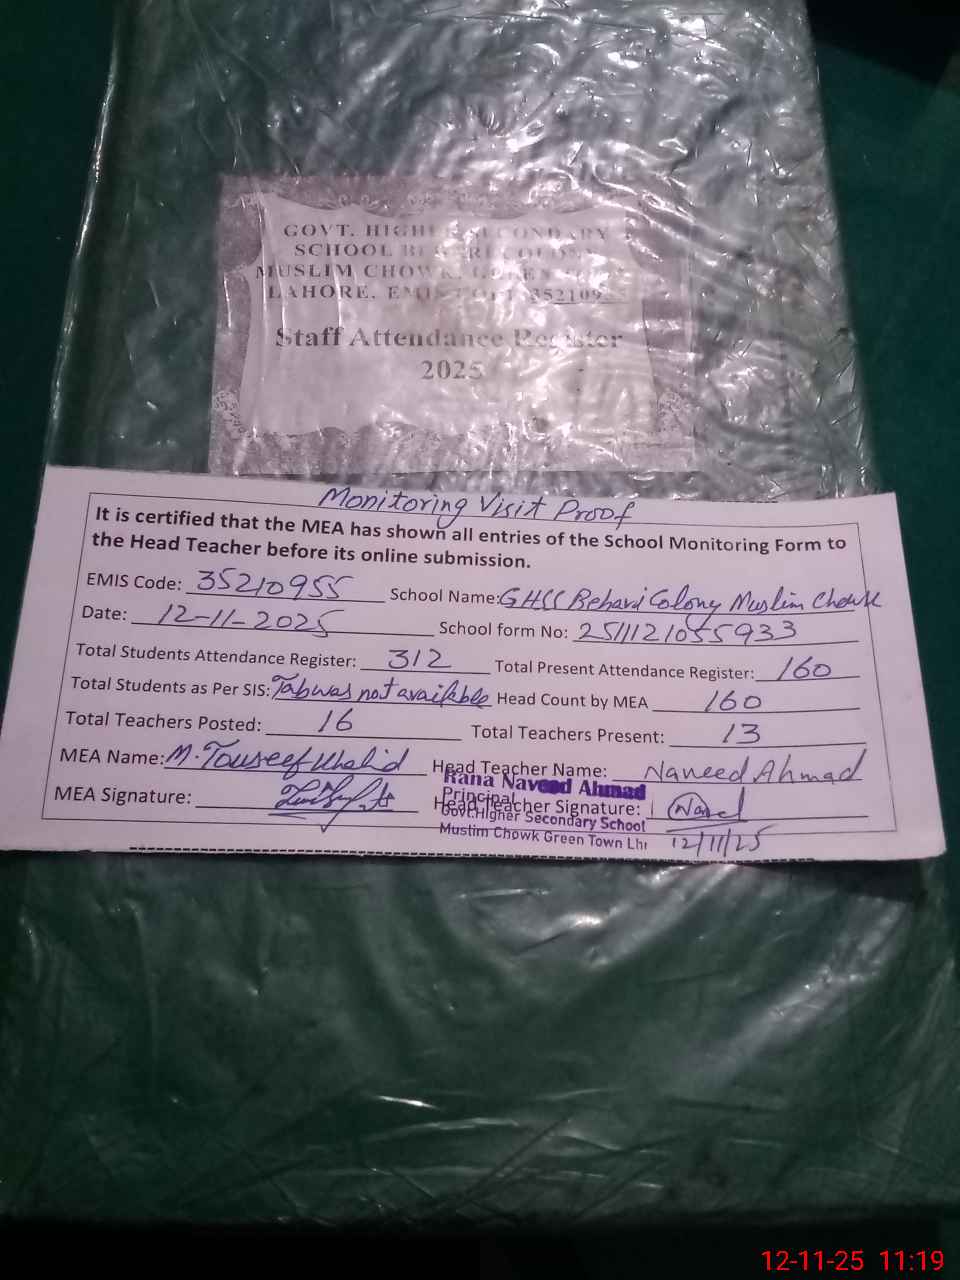 GOVT. HIGHER SECONDARY
SCHOOL BEHARI COLONY
MUSLIM CHOWK, GREEN TOWN
LAHORE. EMIS CODE 35210955
Staff Attendance Register
2025
Monitoring Visit Proof
It is certified that the MEA has shown all entries of the School Monitoring Form to
the Head Teacher before its online submission.
EMIS Code: 35210955 School Name: GHSS Behari Colony Muslim Chowk
Date: 12-11-2025 School form No: 2511121055933
Total Students Attendance Register: 312 Total Present Attendance Register: 160
Total Students as Per SIS: Tab was not available Head Count by MEA 160
Total Teachers Posted: 16 Total Teachers Present: 13
MEA Name: M. Touseef Khalid Head Teacher Name: Naveed Ahmad
MEA Signature: Head Teacher Signature: Naveed
Rana Naveed Ahmad
Principal
Govt.Higher Secondary School
Muslim Chowk Green Town Lhr
12/11/25
12-11-25 11:19